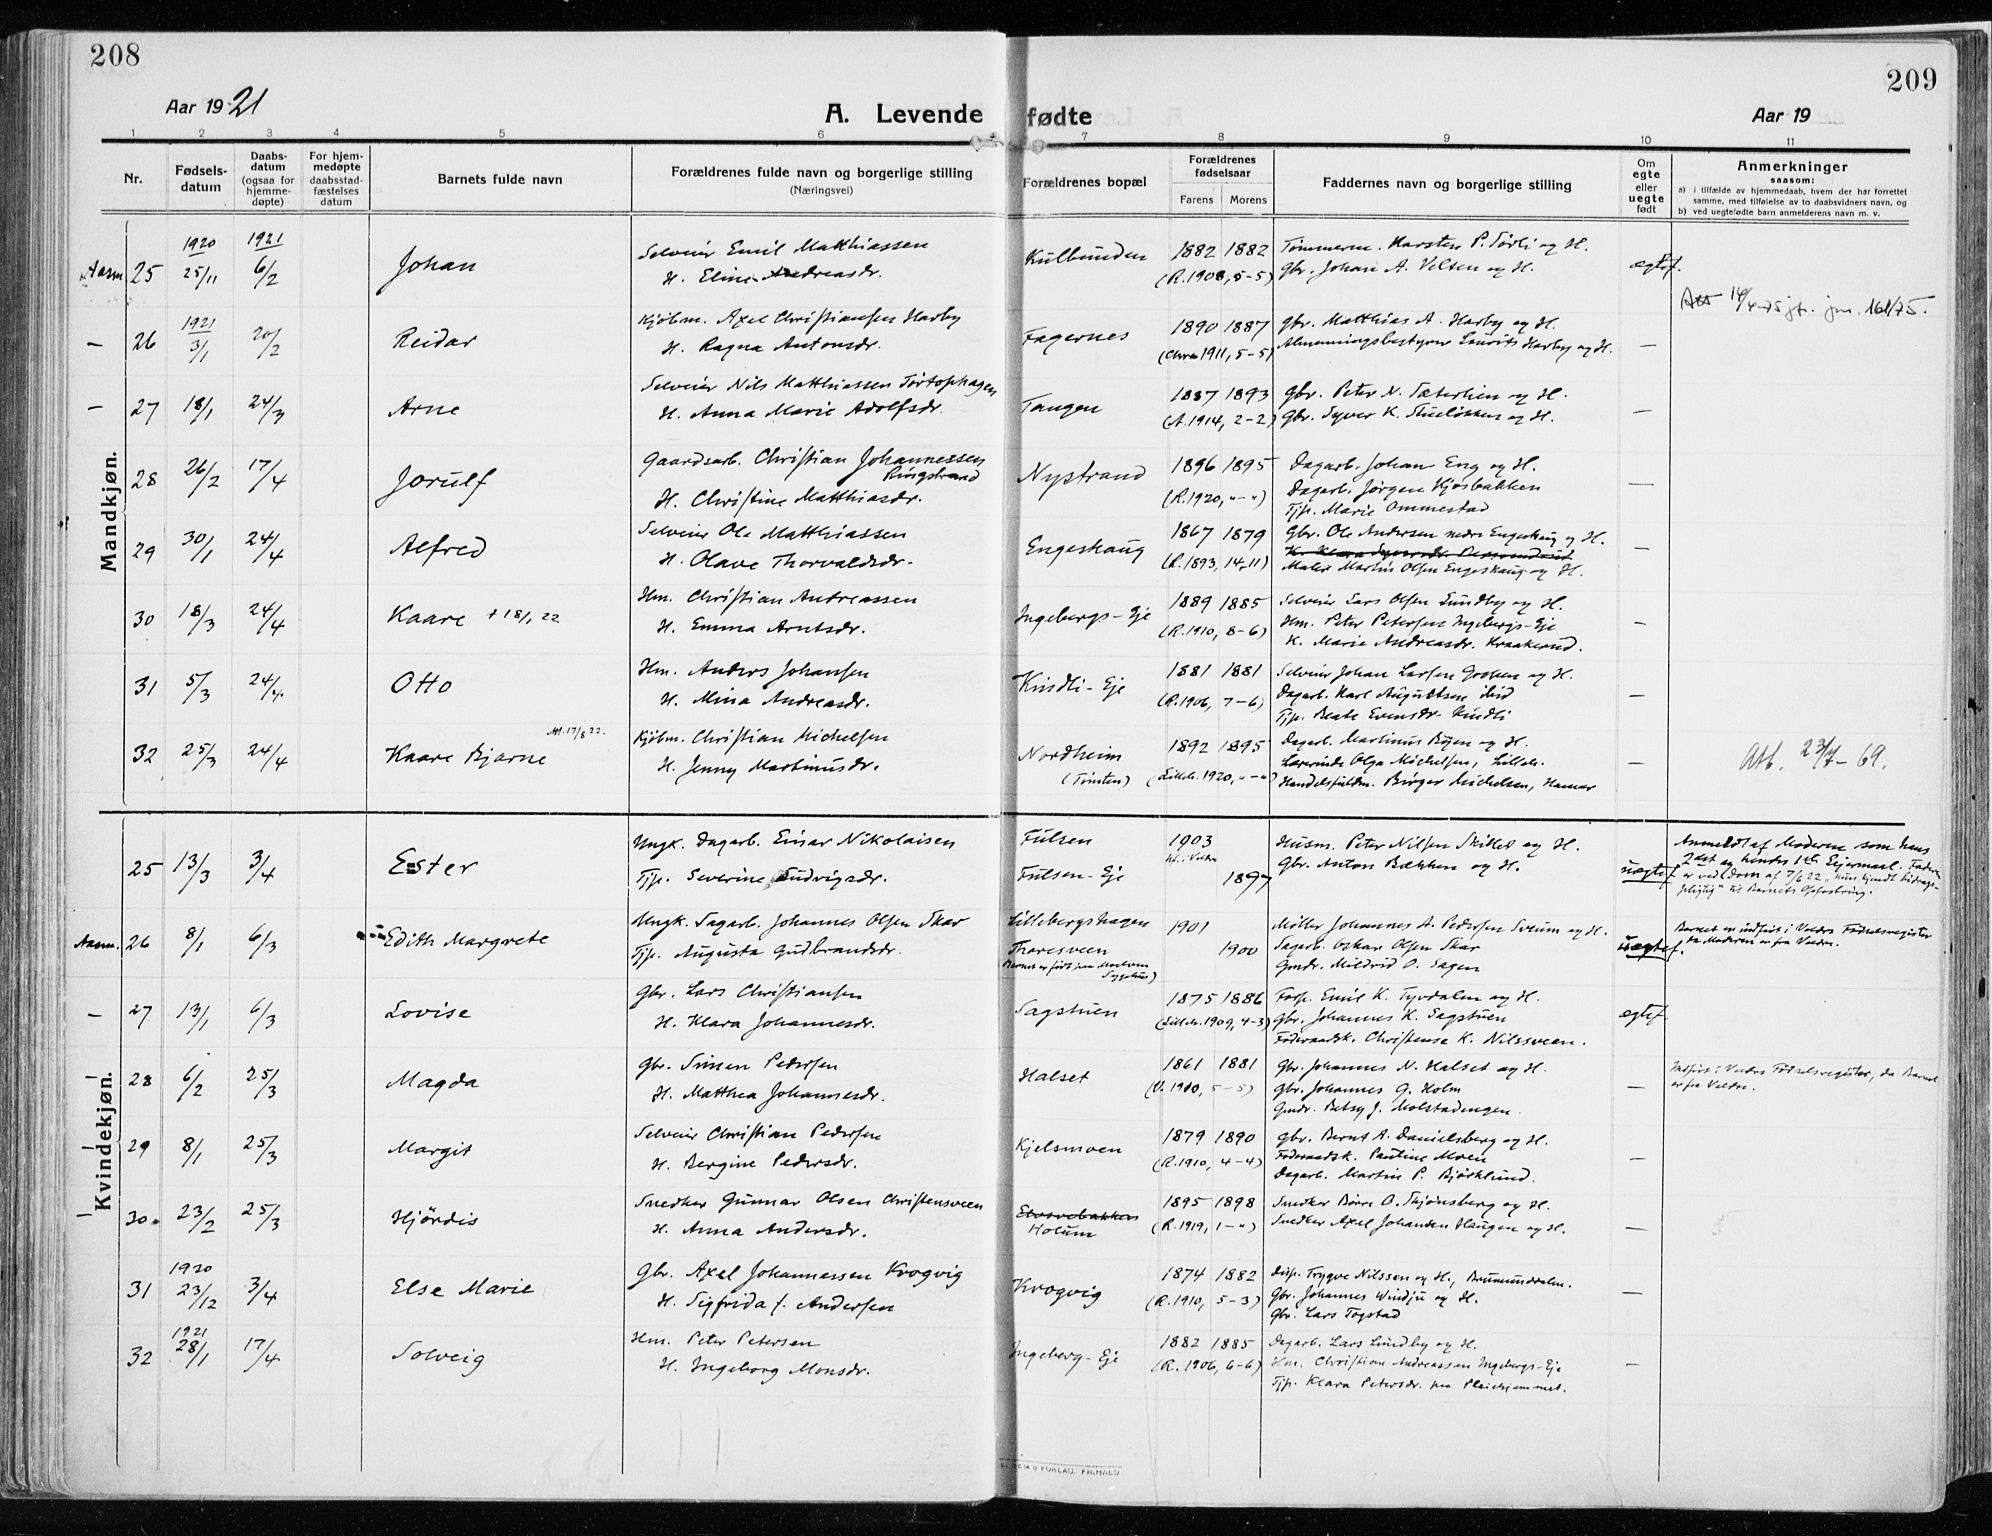 208
209
Aar 1921
A. Levende fødte
Aar 19
1 2 3 4 5 6 7 8 9 10 11
Nr.
Fødsels-
datum
Daabs-
datum
(ogsaa for
hjemme-
døpte)
For hjem-
medøpte
daabsstad-
fæstelses
datum
Barnets fulde navn
Forældrenes fulde navn og borgerlige stilling
(Næringsvei)
Forældrenes bopæl
Forældrenes
fødselsaar
Farens Morens
Faddernes navn og borgerlige stilling
Om
egte
eller
uegte
født
Anmerkninger
saasom:
a) i tilfælde av hjemmedaab, hvem der har forrettet
samme, med tilføielse av to daabsvidners navn, og
b) ved uegtefødte barn anmelderens navn m. v.
Mandkjøn.
1920 1921
Aasm. 25 25/11 6/2 Johan
Selveier Emil Matthiassen
H. Eline Andreasdr.
Kulbunden
1882 1882
(R. 1908, 5-5)
Tømmerm. Karsten P. Sørli og H.
Gbr. Johan A. Velten og H.
ægtef.
14/4-75 jfr. jnr. 161/75.
1921
— 26 3/1 20/2 Reidar
Kjøbm. Axel Christiansen Harby
H. Ragna Antonsdr.
Fagernes
1890 1887
(Chra 1911, 5-5)
Gbr. Matthias A. Harby og H.
Almenningsbestyrer Laurits Harby og H.
—
— 27 18/1 24/3 Arne
Selveier Nils Matthiassen Tørtophagen
H. Anna Marie Adolfsdr.
Tangen
1887 1893
(A. 1914, 2-2)
Gbr. Peter N. Sæterlien og H.
Gbr. Syver K. Stueløkken og H.
—
28 26/2 17/4 Jorulf
Gaardsarb. Christian Johannessen
Ringstrand
H. Christine Matthiasdr.
Nystrand
1896 1895
(R. 1920, "-")
Dagarb. Johan Eng og H.
Dagarb. Jørgen Kjosbakken
Tjp. Marie Ommestad
—
29 30/1 24/4 Alfred
Selveier Ole Matthiassen
H. Olave Thorvaldsdr.
Engeskaug
1867 1879
(R. 1893, 14-11)
Gbr. Ole Andersen nedre Engeskaug og H.
Maler Martin Olsen Engeskaug og H.
—
30 18/3 24/4 Kaare + 18/1 22
Hm. Christian Andreassen
H. Emma Arntsdr.
Ingebergs-Eje
1889 1885
(R. 1910, 8-6)
Selveier Lars Olsen Lundby og H.
Hm. Peter Petersen Ingebergs-Eje
K. Marie Andreasdr. Kraakerud.
—
31 5/3 24/4 Otto
Hm. Anders Johansen
H. Mina Andreasdr.
Kindli-Eje
1881 1881
(R. 1906, 7-6)
Selveier Johan Larsen Grossen og H.
Dagarb. Karl Augustsen ibid
Tjp. Beate Evensdr. Kindli
—
32 25/3 24/4 Kaare Bjarne
Att. 17/8 22.
Kjøbm. Christian Michelsen
H. Jenny Martinusdr.
Nordheim
(Tomten)
1892 1895
(Lilleh. 1920, "-")
Dagarb. Martinus Byen og H.
Lærerinde Olga Michelsen, Lilleh.
Handelsfuldm. Birger Michelsen, Hamar
—
Att. 23/7-69.
Kvindekjøn.
25 13/3 3/4 Ester
Ungk. Dagarb. Einar Nikolaisen
Tjp. Severine Ludvigsdr.
Fulsen
Fulsen-Eje
1903
1897
Husm. Peter Nilsen Skillet og H.
Gbr. Anton Bækken og H.
uægtef.
Anmeldt af Moderen som hans
2det og hendes 1ste Leiermaal. Faderen
er ved Dom af 7/6 22 "kun kjendt bidrags-
pligtig" til Barnets Opfostring.
Aasm. 26 8/1 6/3 Edith Margrete
Ungk. Sagarb. Johannes Olsen Skar
Tjp. Augusta Gudbrandsdr.
Lillebergshagen
Thoresveen
(Barnet er født paa Moelven
Sygehus)
1901
1900
Møller Johannes A. Pedersen Sveum og H.
Sagarb. Oskar Olsen Skar
Gmdr. Mildrid O. Sagen
uægtef.
Barnet er indført i Veldre Fødselsregister
da Moderen er fra Veldre.
— 27 13/1 6/3 Lovise
Gbr. Lars Christiansen
H. Klara Johannesdr.
Sagstuen
1875 1886
(Lilleh. 1909, 4-3)
Forp. Emil K. Tyvdalen og H.
Gbr. Johannes K. Sagstuen
Føderaadsk. Christense K. Nilssveen.
ægtef.
— 28 6/2 25/3 Magda
Gbr. Simen Pedersen
H. Matthea Johannesdr.
Halset
1861 1881
(V. 1900, 5-5)
Gbr. Johannes N. Halset og H.
Gbr. Johannes G. Holm
Gmdr. Betsy J. Molstadengen.
—
Indført i Veldre Fødselsregister, da Barnet
er fra Veldre.
— 29 8/1 25/3 Margit
Selveier Christian Pedersen
H. Bergine Pedersdr.
Kjelsmoen
1879 1890
(R. 1910, 4-4)
Gbr. Bernt A. Danielsberg og H.
Føderaadsk. Pauline Moen
Dagarb. Martin P. Bjørklund.
—
— 30. 23/2 25/3 Hjördis
Snedker Gunnar Olsen Christensveen
H. Anna Andersdr.
Holum
1895 1898
(R. 1919, 1-")
Snedker Børre O. Skjønsberg og H.
Snedker Axel Johansen Haugen og H.
—
1920
31 23/12 3/4 Else Marie
Gbr. Axel Johannessen Krogvig
H. Sigfrida f. Andersen
Krogvig
1874 1882
(R. 1910, 5-3)
Disp. Trygve Nilssen og H., Brumunddalen.
Gbr. Johannes Windju og H.
Gbr. Lars Togstad
—
1921
32 28/1 17/4 Solveig
Hm. Peter Petersen
H. Ingeborg Monsdr.
Ingeberg-Eje
1882 1885
(R. 1906, 6-6)
Dagarb. Lars Lundby og H.
Hm. Christian Andreassen Ingebergs-Eje
Tjp. Klara Petersdr. paa Pleiehjemmet.
—